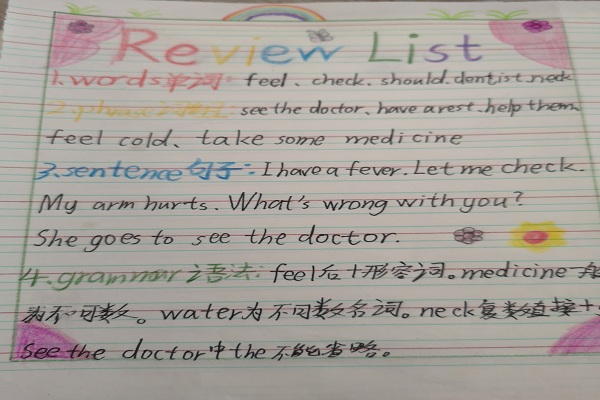 Review List
1. words单词: feel、check、should、dentist、neck
2. phrase词组: see the doctor、have a rest、help them、
feel cold、take some medicine
3. sentence句子: I have a fever. Let me check.
My arm hurts. What's wrong with you?
She goes to see the doctor.
4. grammar语法: feel后+形容词。medicine一般
为不可数。water为不可数名词。neck复数直接+
see the doctor中the不能省略。